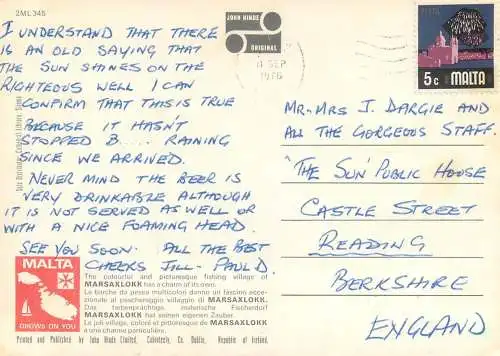 2ML 345
JOHN HINDE
ORIGINAL
SEP
1976
5c MALTA
I UNDERSTAND THAT THERE
IS AN OLD SAYING THAT
THE SUN SHINES ON THE
RIGHTEOUS WELL I CAN
CONFIRM THAT THIS IS TRUE
BECAUSE IT HASN'T
STOPPED B.... RAINING
SINCE WE ARRIVED.
NEVER MIND THE BEER IS
VERY DRINKABLE ALTHOUGH
IT IS NOT SERVED AS WELL OR
WITH A NICE FOAMING HEAD.
SEE YOU SOON. ALL THE BEST
CHEERS JILL - PAUL D
MR-MRS J. DARGIE AND
ALL THE GORGEOUS STAFF.
'THE SUN' PUBLIC HOUSE
CASTLE STREET
READING
BERKSHIRE
ENGLAND
MALTA
GROWS ON YOU
The colourful and picturesque fishing village of
MARSAXLOKK has a charm of its own.
Le barche da pesca multicolori danno un fascino ecce-
zionale al paschereggio villaggio di MARSAXLOKK.
Das farbenprächtige, malerische Fischerdorf
MARSAXLOKK hat seinen eigenen Zauber.
Le joli village, coloré et pittoresque de MARSAXLOKK
a une charme particulière.
Printed and Published by John Hinde Limited, Cabinteely, Co. Dublin, Republic of Ireland.